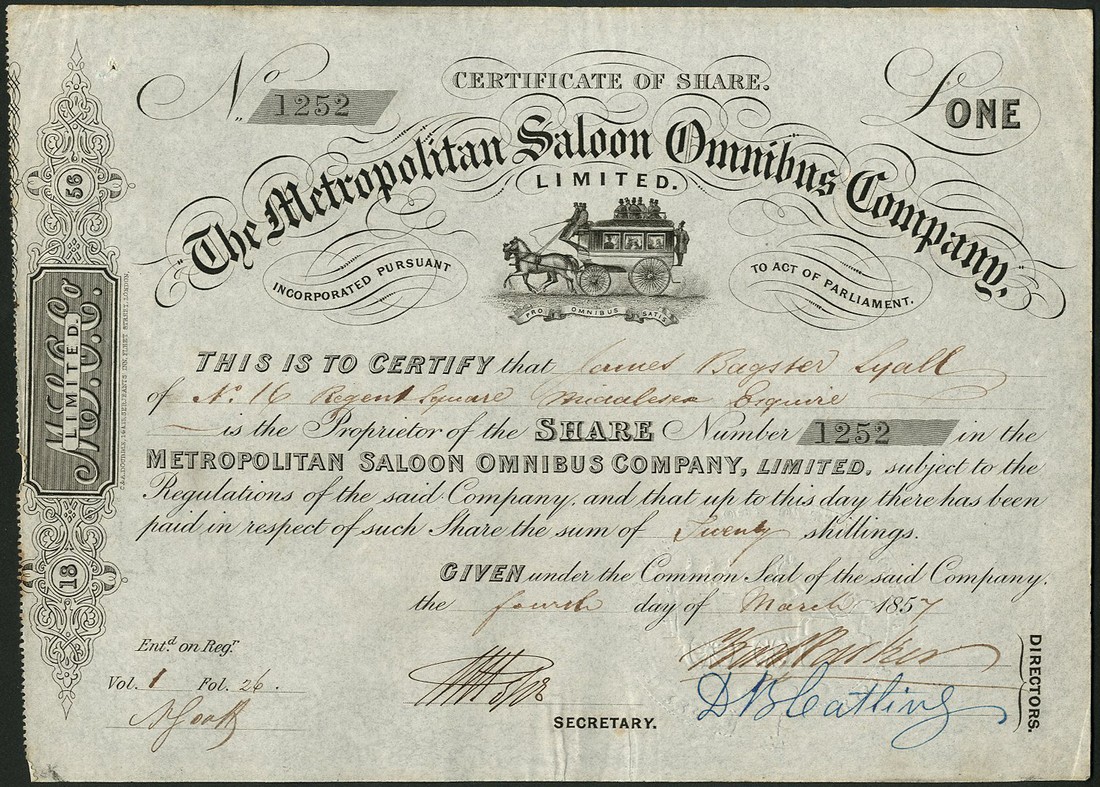 No 1252
CERTIFICATE OF SHARE.
£ONE
"The Metropolitan Saloon Omnibus Company,"
LIMITED.
INCORPORATED PURSUANT
TO ACT OF PARLIAMENT.
PRO OMNIBUS SATIS
THIS IS TO CERTIFY that James Bagster Lyall
of No. 16 Regent Square Middlesex Esquire
is the Proprietor of the SHARE Number 1252 in the
METROPOLITAN SALOON OMNIBUS COMPANY, LIMITED, subject to the
Regulations of the said Company, and that up to this day there has been
paid in respect of such Share the sum of Twenty shillings.
GIVEN under the Common Seal of the said Company,
the fourth day of March 1857
Entd on Regr
Vol. 1 Fol. 26.
SECRETARY.
D B Catling
DIRECTORS.
18 56
M.S.O.Co.
LIMITED.